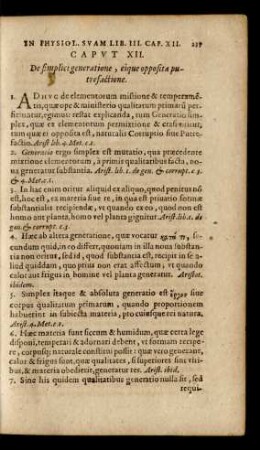 IN PHYSIOL. SVAM LIB. III. CAP. XII. 239
CAPVT XII.
De simplici generatione, eique opposita pu-
trefactione.
1. ADHVC de elementorum mistione & temperamē-
to, quæ ope & ministerio qualitatum primarū per-
ficiuntur, egimus: restat explicanda, tum Generatio sim-
plex, quæ ex elementorum permistione & crasi existit,
tum quæ ei opposita est, naturalis Corruptio siue Putre-
factio. Arist. lib. 4. Met. c. 1.
2. Generatio ergo simplex est mutatio, qua præcedente
mixtione elementorum, à primis qualitatibus facta, no-
ua generatur substantia. Arist. lib. 1. de gen. & corrupt. c. 3.
& 4. Met. c. 1.
3. In hac enim oritur aliquid ex aliquo, quod penitus nō
est, hoc est, ex materia siue re, in qua est priuatio formæ
substantialis recipiendæ, vt quando ex eo, quod non est
homo aut planta, homo vel planta gignitur. Arist. lib. 1. de
gen. & corrupt. c. 3.
4. Hæc ab altera generatione, quæ vocatur κατά τι, se-
cundum quid, in eo differt, quoniam in illa noua substan-
tia non oritur, sed id, quod substantia est, recipit in se a-
liquid quiddam, quo prius non erat affectum; vt quando
calor aut frigus in homine vel planta generatur. Aristot.
ibidem.
5. Simplex itaque & absoluta generatio est ἔργον siue
corpus qualitatum primarum, quando proportionem
habuerint in subiecta materia, pro cuiusque rei natura.
Arist. 4. Met. c. 1.
6. Hæc materia sunt siccum & humidum, quæ certa lege
disponi, temperari & adornari debent, vt formam recipe-
re, corpusq; naturale constitui possit: quæ vero generant,
calor & frigus sunt, quæ qualitates, si superiores sint viri-
bus, & materia obedierit, generatur res. Arist. ibid.
7. Sine his quidem qualitatibus generatio nulla fit, sed
requi-